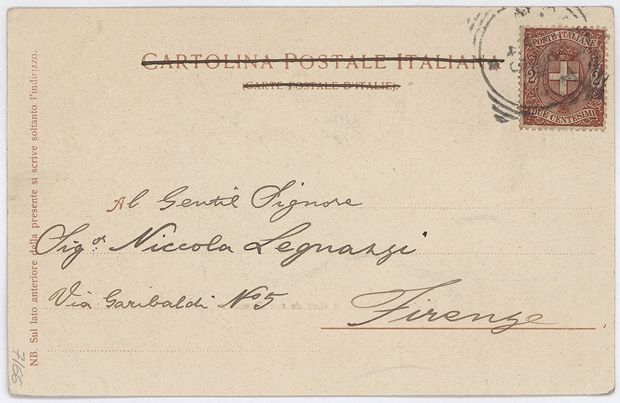 CARTOLINA POSTALE ITALIANA
(CARTE POSTALE D'ITALIE)
POSTE ITALIANE
2 2
DUE CENTESIMI
Al Gentil Signore
Sigr. Niccola Legnazzi
Via Garibaldi No 5
Firenze
NB. Sul lato anteriore della presente si scrive soltanto l'indirizzo.
7166